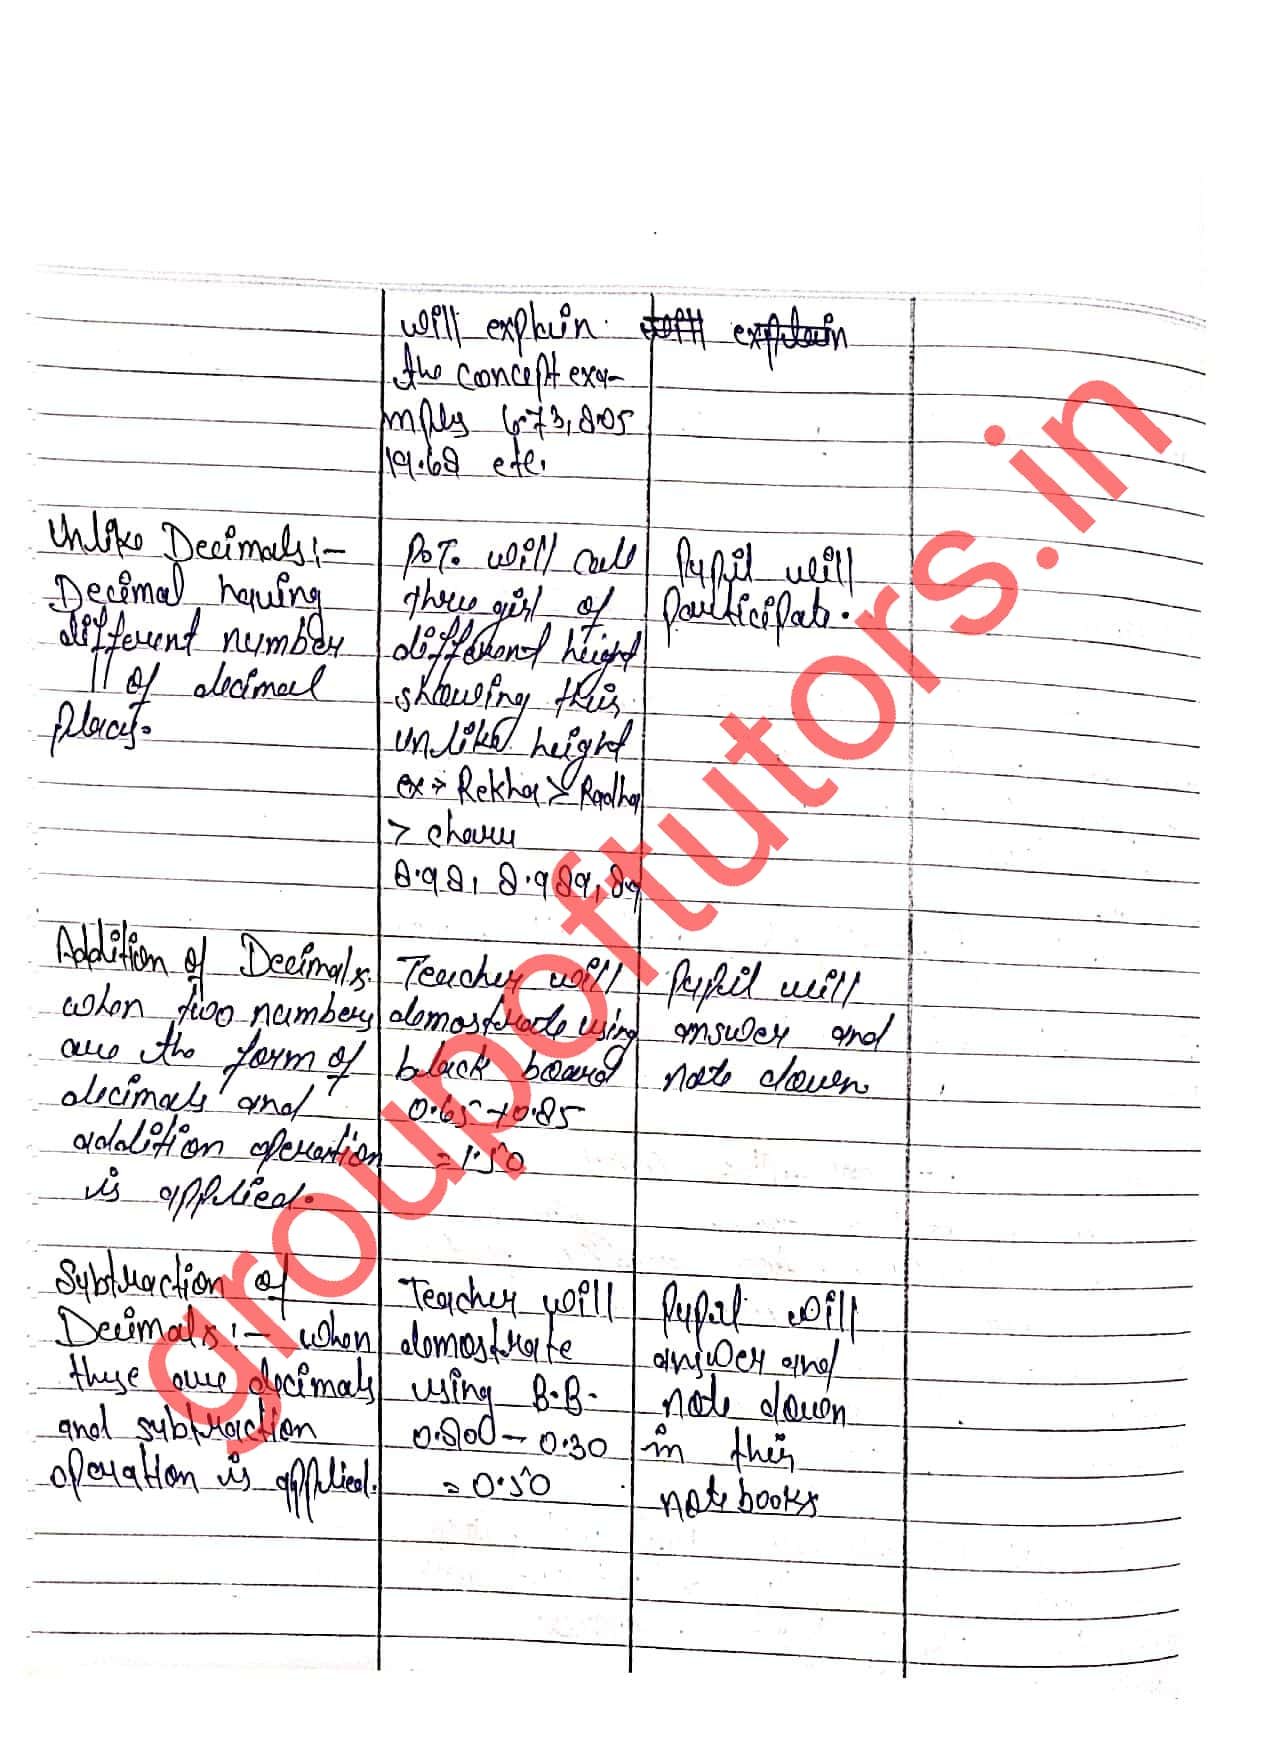 will explain.
the concept exa-
mples 6.73, 8.05
19.68 etc.
Unlike Decimals:-
Decimal having
different number
of decimal
places.
P.T. will call
three girl of
different height
showing this
unlike height
ex → Rekha > Radha
> charu
8.98, 8.989, 8.9
Pupil will
participate.
Addition of Decimals.
when two numbers
are the form of
decimals and
addition operation
is applied.
Teacher will
demostrate using
black board
0.65 + 0.85
= 1.50
Pupil will
answer and
note down
Subtraction of
Decimals:- when
these are decimals
and subtraction
operation is applied.
Teacher will
demostrate
using B.B.
0.800 - 0.30
= 0.50
Pupil will
answer and
note down
in their
notebooks
groupoftutors.in